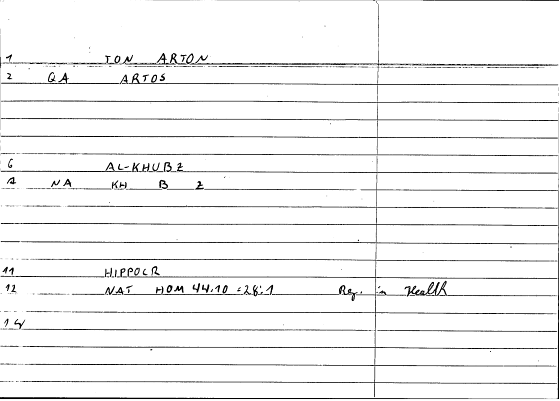 1 TON ARTON
2 QA ARTOS
6 AL-KHUBZ
7 NA KH B Z
11 HIPPOCR
12 NAT HOM 44.10 = 28:1 Reg. in Health
14